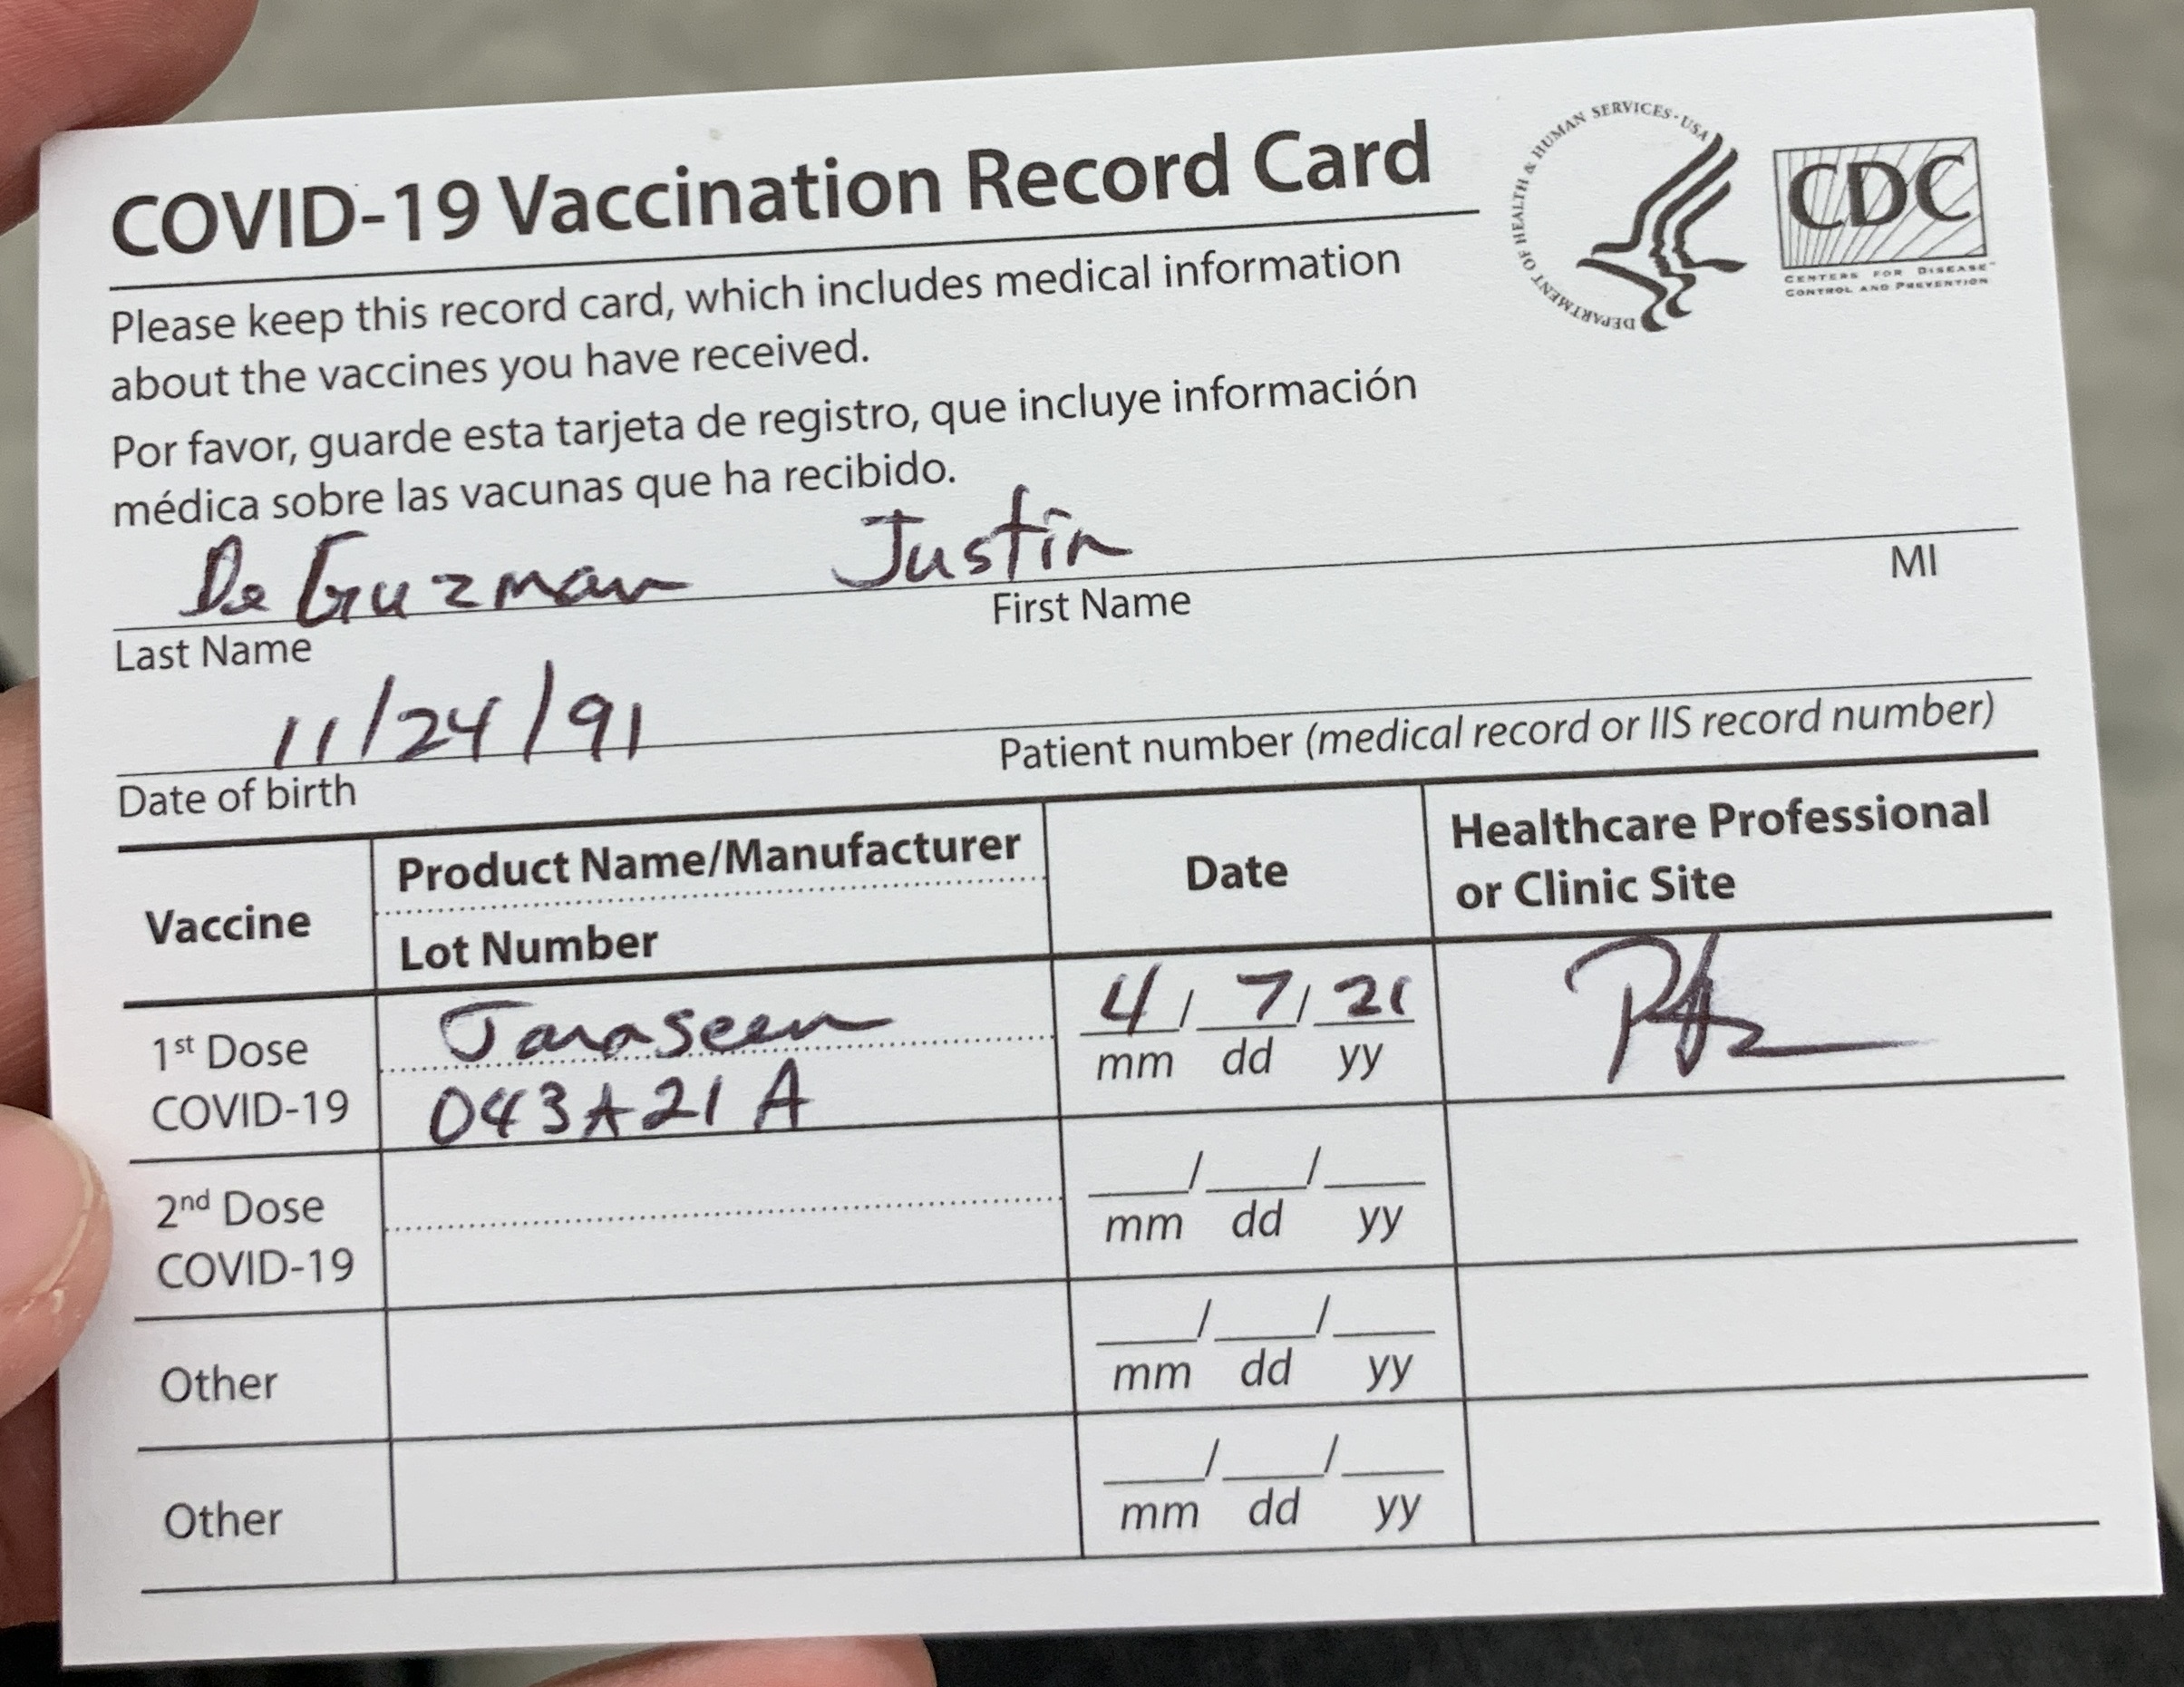 COVID-19 Vaccination Record Card
DEPARTMENT OF HEALTH & HUMAN SERVICES · USA
CDC
CENTERS FOR DISEASE™
CONTROL AND PREVENTION
Please keep this record card, which includes medical information
about the vaccines you have received.
Por favor, guarde esta tarjeta de registro, que incluye información
médica sobre las vacunas que ha recibido.
De Guzman Justin
Last Name First Name MI
11/24/91
Date of birth Patient number (medical record or IIS record number)
Vaccine
Product Name/Manufacturer
Lot Number
Date
Healthcare Professional
or Clinic Site
1st Dose
COVID-19
Janaseen
043A21A
4 / 7 / 21
mm dd yy
2nd Dose
COVID-19
/ /
mm dd yy
Other
/ /
mm dd yy
Other
/ /
mm dd yy